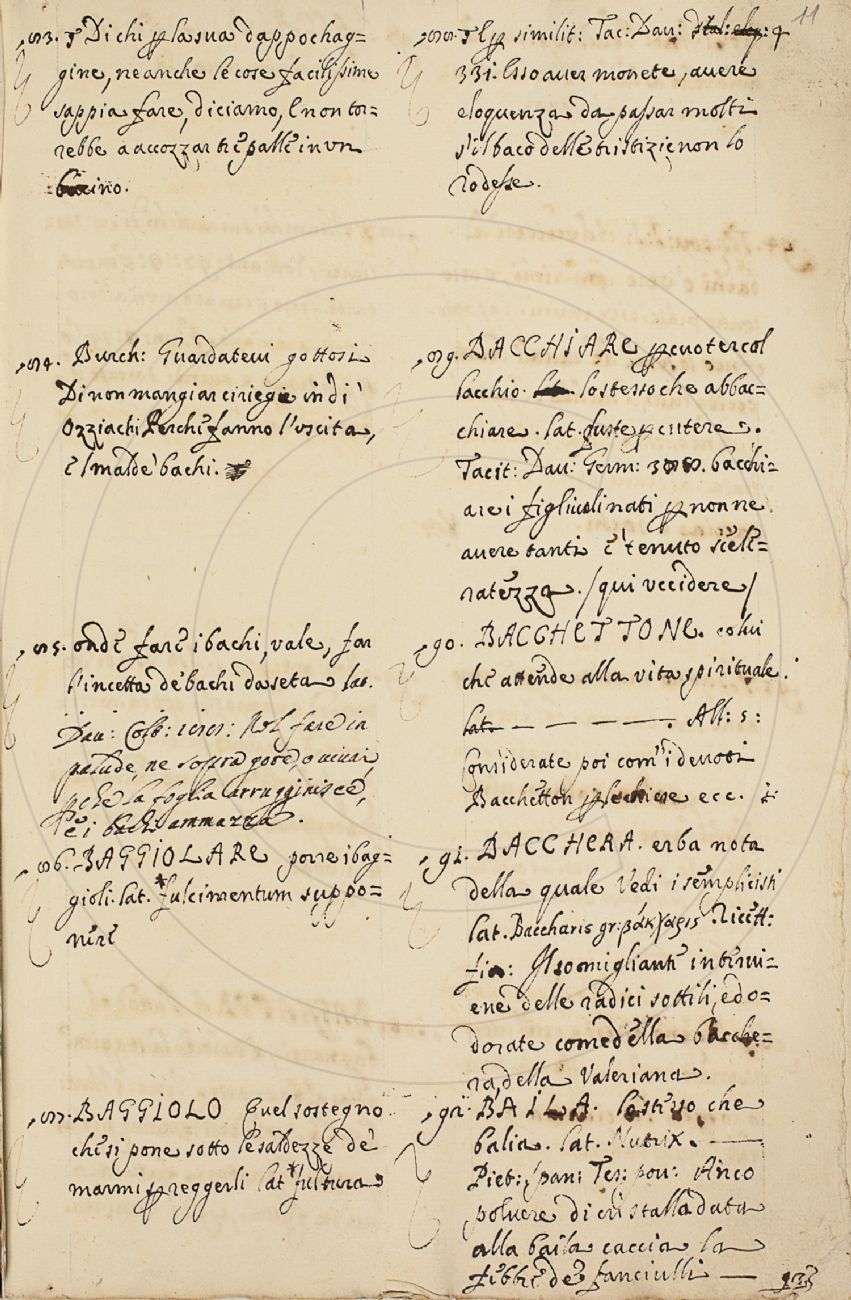 83. § Di chi p la sua dappochag=
gine, ne anche le cose facilissime
sappia fare, diciamo, E non tor=
rebbe a accozzar tre palle in un
bacino.
84. Burch: Guardatevi gottosi
Di non mangiar ciriegie in dì
Ozziachi Perche fanno l'uscita,
e 'l mal de' bachi.
85. onde fare i bachi, vale, far
l'incetta de bachi da seta lat.
Dau: Colt: Nol fare in
palude, ne sopra gore, o viuai,
pche la foglia arrugginisce,
e i bachi ammazza.
86. BAGGIOLARE porre i bag=
gioli. lat. *fulcimentum suppo=
nere
87. BAGGIOLO Quel sostegno
che si pone sotto le saldezze de'
marmi p reggerli lat *fultura
11
88. § E p similit: Tac: Dau:
331. Esso auer monete, auere
eloquenza da passar molti
s'il baco delle tristizie non lo
rodesse.
89. BACCHIARE percuoter col
bacchio. lo stesso che abbac=
chiare. lat. fuste percutere.
Tacit: Dau: Germ: bacchi=
are i figliuoli nati p non ne
auere tanti è tenuto scele=
ratezza. /qui uccidere/
90. BACCHETTONE. colui
che attende alla vita spirituale.
lat. — — — — —. All: 5:
Considerate poi com' i deuoti
Bacchetton p le chiese ecc.
91. BACCHERA. erba nota
della quale Vedi i semplicisti
lat. Baccharis gr: βάκχαρις Ricett:
fior: Il somigliante interui=
ene delle radici sottili, e do=
dorate come della bacche=
ra, della Valeriana.
92. BAILA. lo stesso che
balia. lat. Nutrix. —
Piet: Span: Tes: pou: Anco
poluere di cristallo data
alla baila caccia la
febbre de' fanciulli —
93